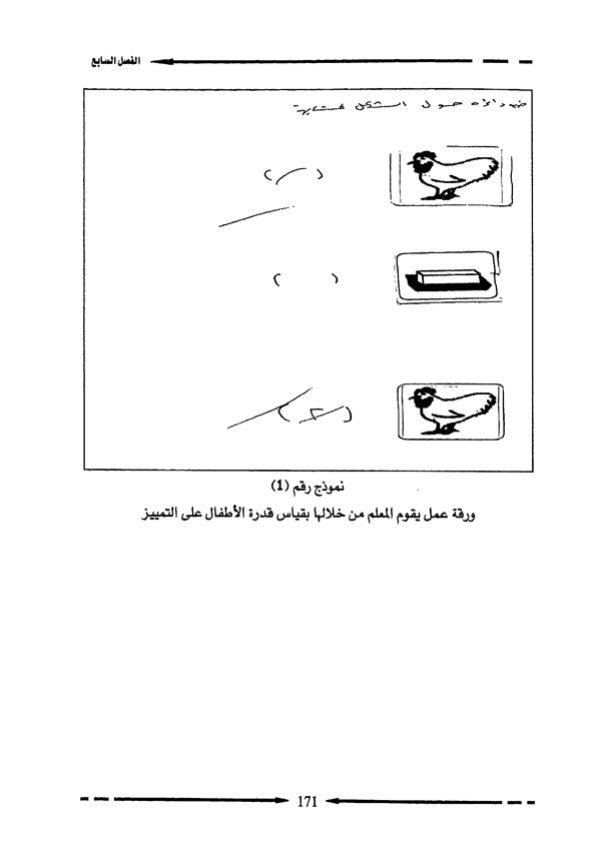 الفصل السابع
ضع دائرة حول الشكل المتشابه
( )
( )
( )
نموذج رقم (1)
ورقة عمل يقوم المعلم من خلالها بقياس قدرة الأطفال على التمييز
171